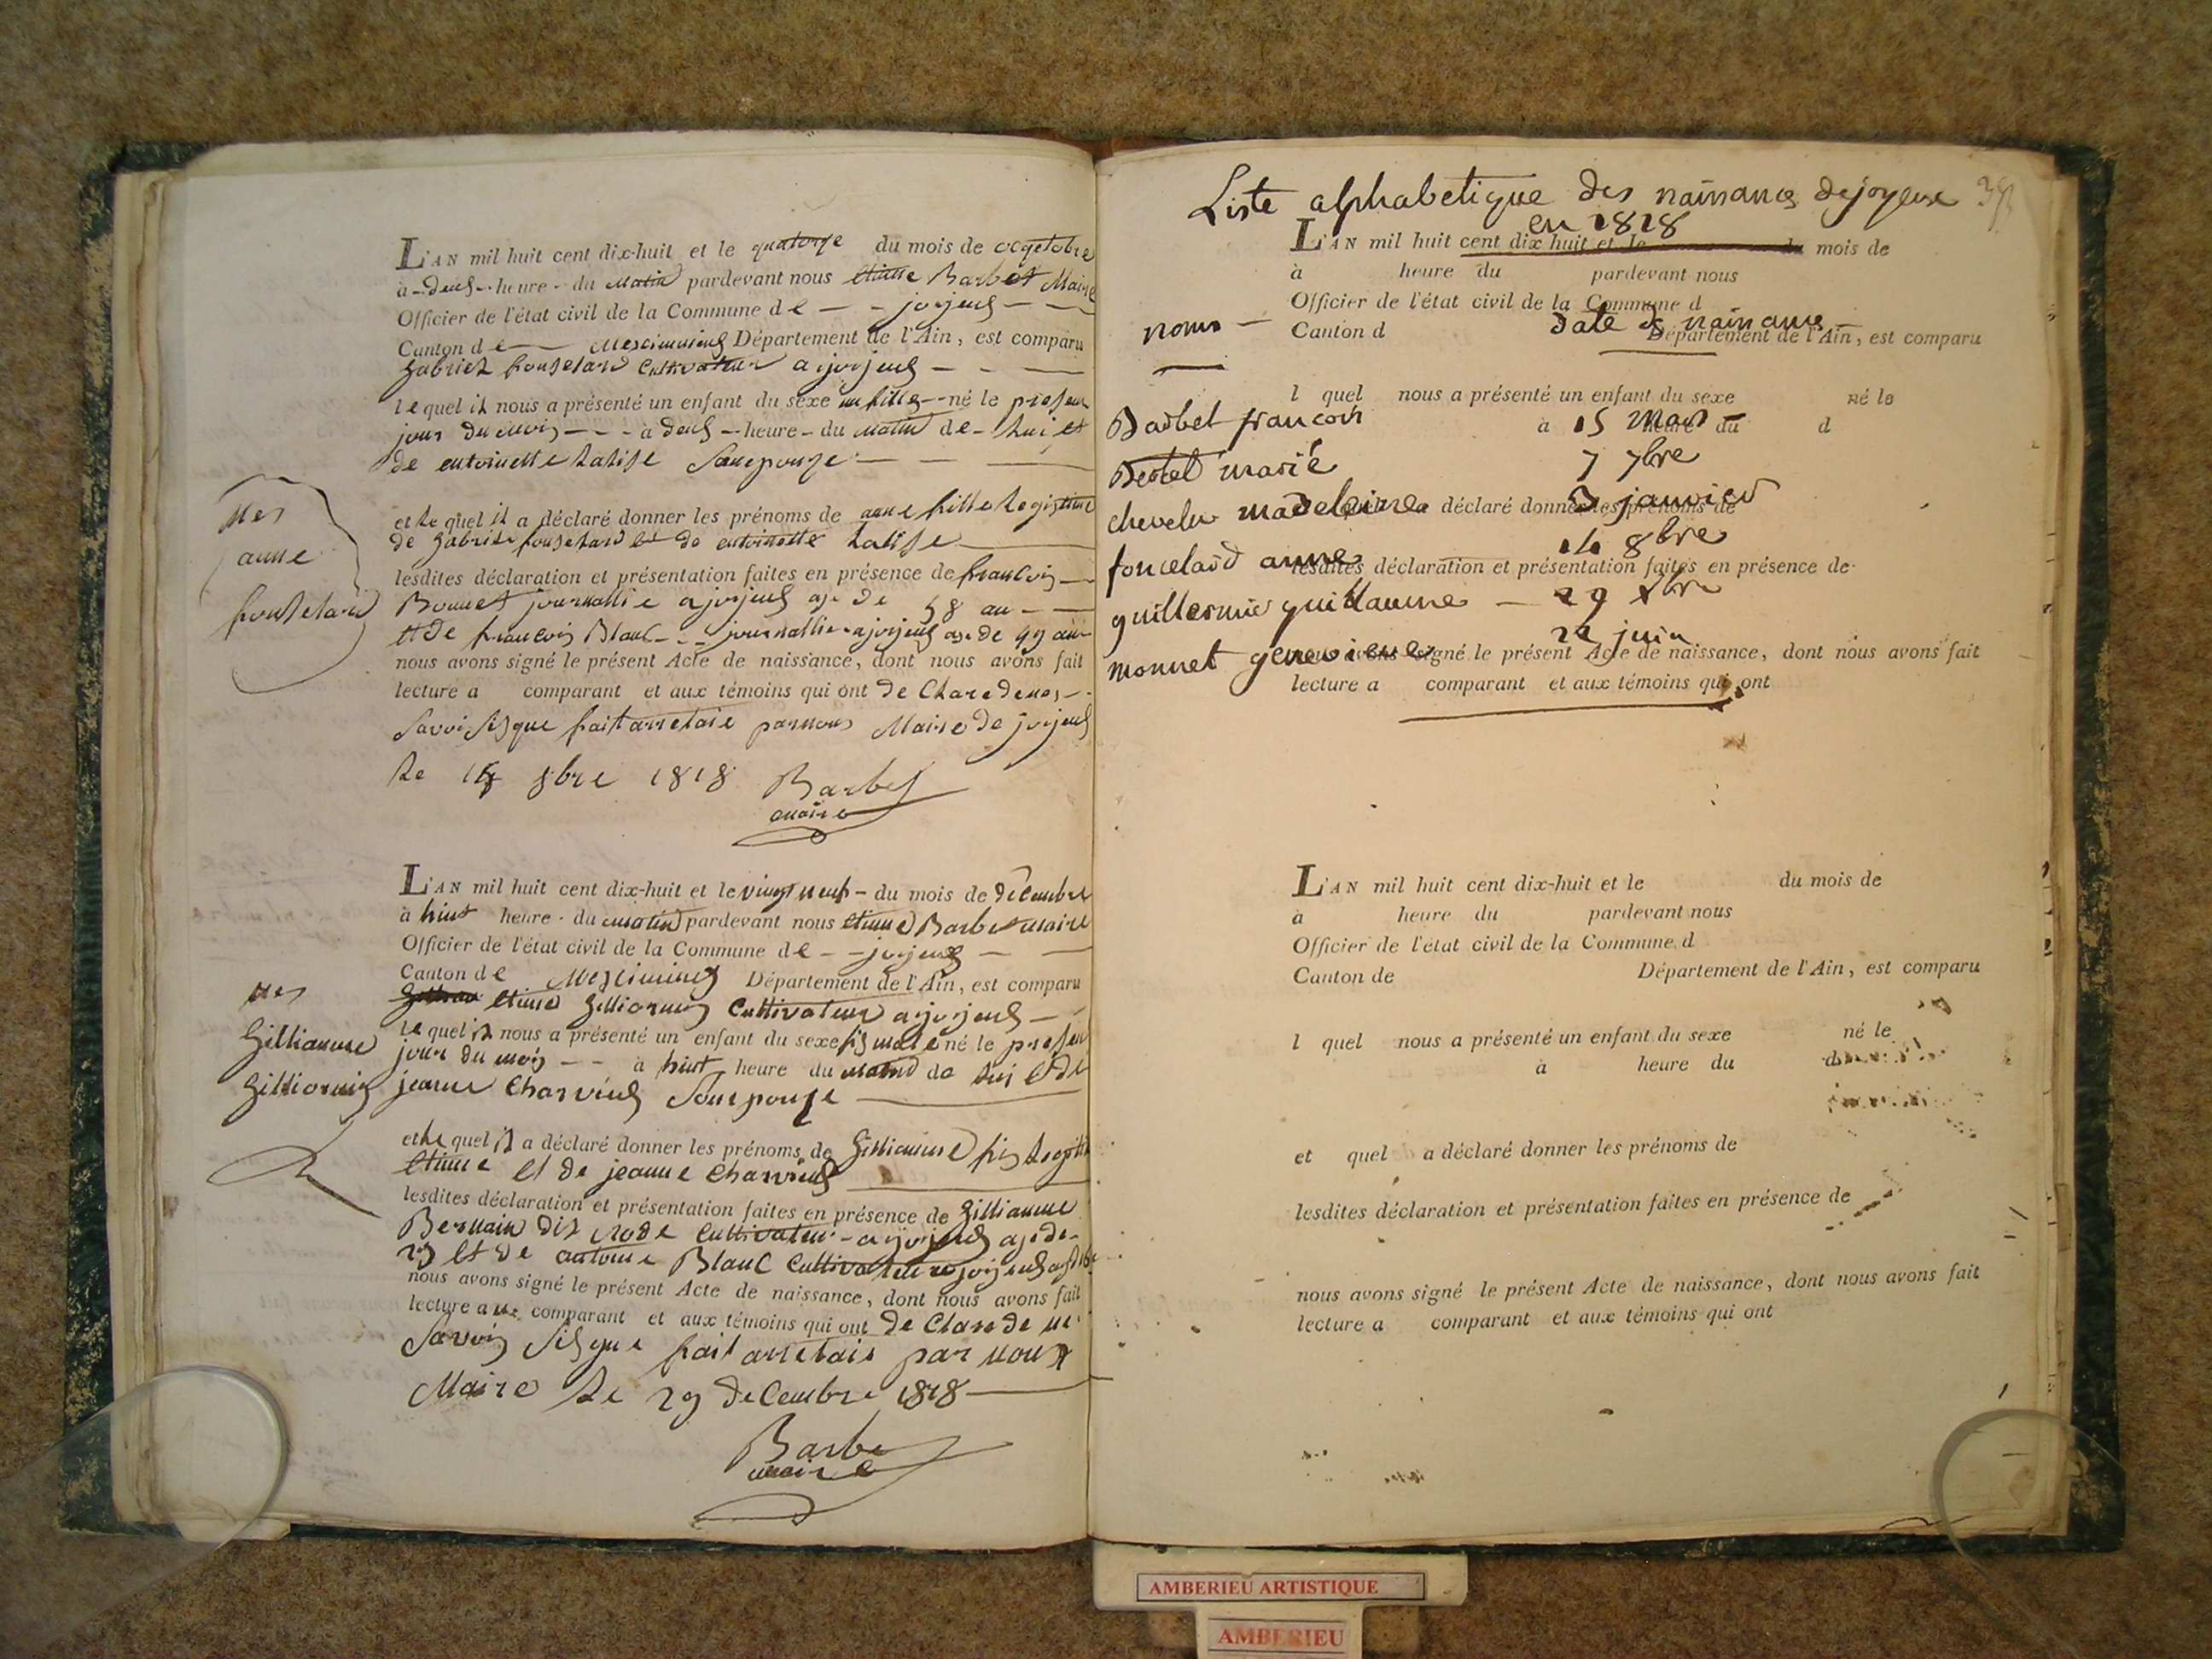 L'AN mil huit cent dix-huit et le quatorze du mois de ocgetobre
à - deus - heure - du matin pardevant nous etiene Barbet Maire
Officier de l'état civil de la Commune de - - jorjeus - -
Canton de - Meximieus Département de l'Ain, est comparu
gabriel fouselard Cultivateur a jorjeus - - -
lequel il nous a présenté un enfant du sexe un fille - né le presen
jour du mois - - - à deus - heure - du matin de - lui et
de entoinette Sonepouze
nes
anne
fouselard
et le quel il a déclaré donner les prénoms de anne fille legitime
de gabriel fouselard et de entoinette
lesdites déclaration et présentation faites en présence de francois -
Bonnet journallie a jorjeus age de 58 an - -
et de francois Blanc - - journallie a jorjeus age de 49 an
nous avons signé le présent Acte de naissance, dont nous avons fait
lecture a comparant et aux témoins qui ont de Clare de nes -
Savoi Sigque fait arretaie parnous Maire de jorjeus
Le 14 8bre 1818 Barbet
maire
L'AN mil huit cent dix-huit et le vingt neuf - du mois de décembre
à huit heure - du matin pardevant nous etiene Barbet maire
Officier de l'état civil de la Commune de - - jorjeus - -
Canton de Meximieus Département de l'Ain, est comparu
etiene gilliermin Cultivateur a jorjeus - -
nes
gilliaume
gilliermin
le quel il nous a présenté un enfant du sexe fis male né le presen
jour du mois - - à huit heure du matin de lui et de
jeanne Charvieus Sonepouze
et le quel il a déclaré donner les prénoms de gilliaume fis legiti
etiene et de jeanne Charvieus
lesdites déclaration et présentation faites en présence de gilliaume
Bernain dit Cultivateur - a jorjeus age de -
et de antoine Blanc Cultivateur a jorjeus
nous avons signé le présent Acte de naissance, dont nous avons fait
lecture a ue comparant et aux témoins qui ont de Clare de ne
Savoi Sigque fait arretaie par nous
Maire Le 29 decembre 1818
Barbe
maire
Liste alphabetique des naissances de joyeux
en 1818
L'AN mil huit cent dix huit et le du mois de
à heure du pardevant nous
Officier de l'état civil de la Commune d
noms - Canton d date de naissance
Département de l'Ain, est comparu
l quel nous a présenté un enfant du sexe né le
Barbet francois à 15 mars heure du d
Bertel marie 7 7bre
chevelu madeleine a déclaré donner les prénoms de 3 janvier
foncelard anne 14 8bre
lesdites déclaration et présentation faites en présence de
guillermin guillaume - 29 xbre
monnet genevieve 22 juin
nous avons signé le présent Acte de naissance, dont nous avons fait
lecture a comparant et aux témoins qui ont
L'AN mil huit cent dix-huit et le du mois de
à heure du pardevant nous
Officier de l'état civil de la Commune d
Canton de Département de l'Ain, est comparu
l quel nous a présenté un enfant du sexe né le
à heure du d
et quel a déclaré donner les prénoms de
lesdites déclaration et présentation faites en présence de
nous avons signé le présent Acte de naissance, dont nous avons fait
lecture a comparant et aux témoins qui ont
AMBERIEU ARTISTIQUE
AMBERIEU